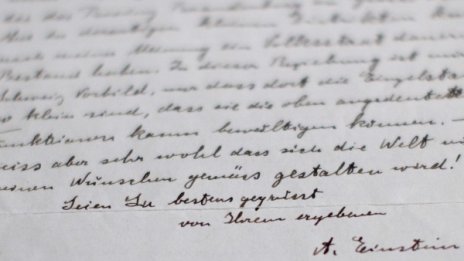 nach meiner Meinung ein Volksstaat dauern
Bestand haben. In dieser Beziehung ist mir
Schweiz Vorbild, nur dass dort die Einzelstaat
so klein sind, dass sie die oben angedeutete
Funktionen kaum bewältigen können. —
weiss aber sehr wohl dass sich die Welt ni
meinen Wünschen gemäss gestalten wird!
Seien Sie bestens gegrüsst
von Ihrem ergebenen
A. Einstein